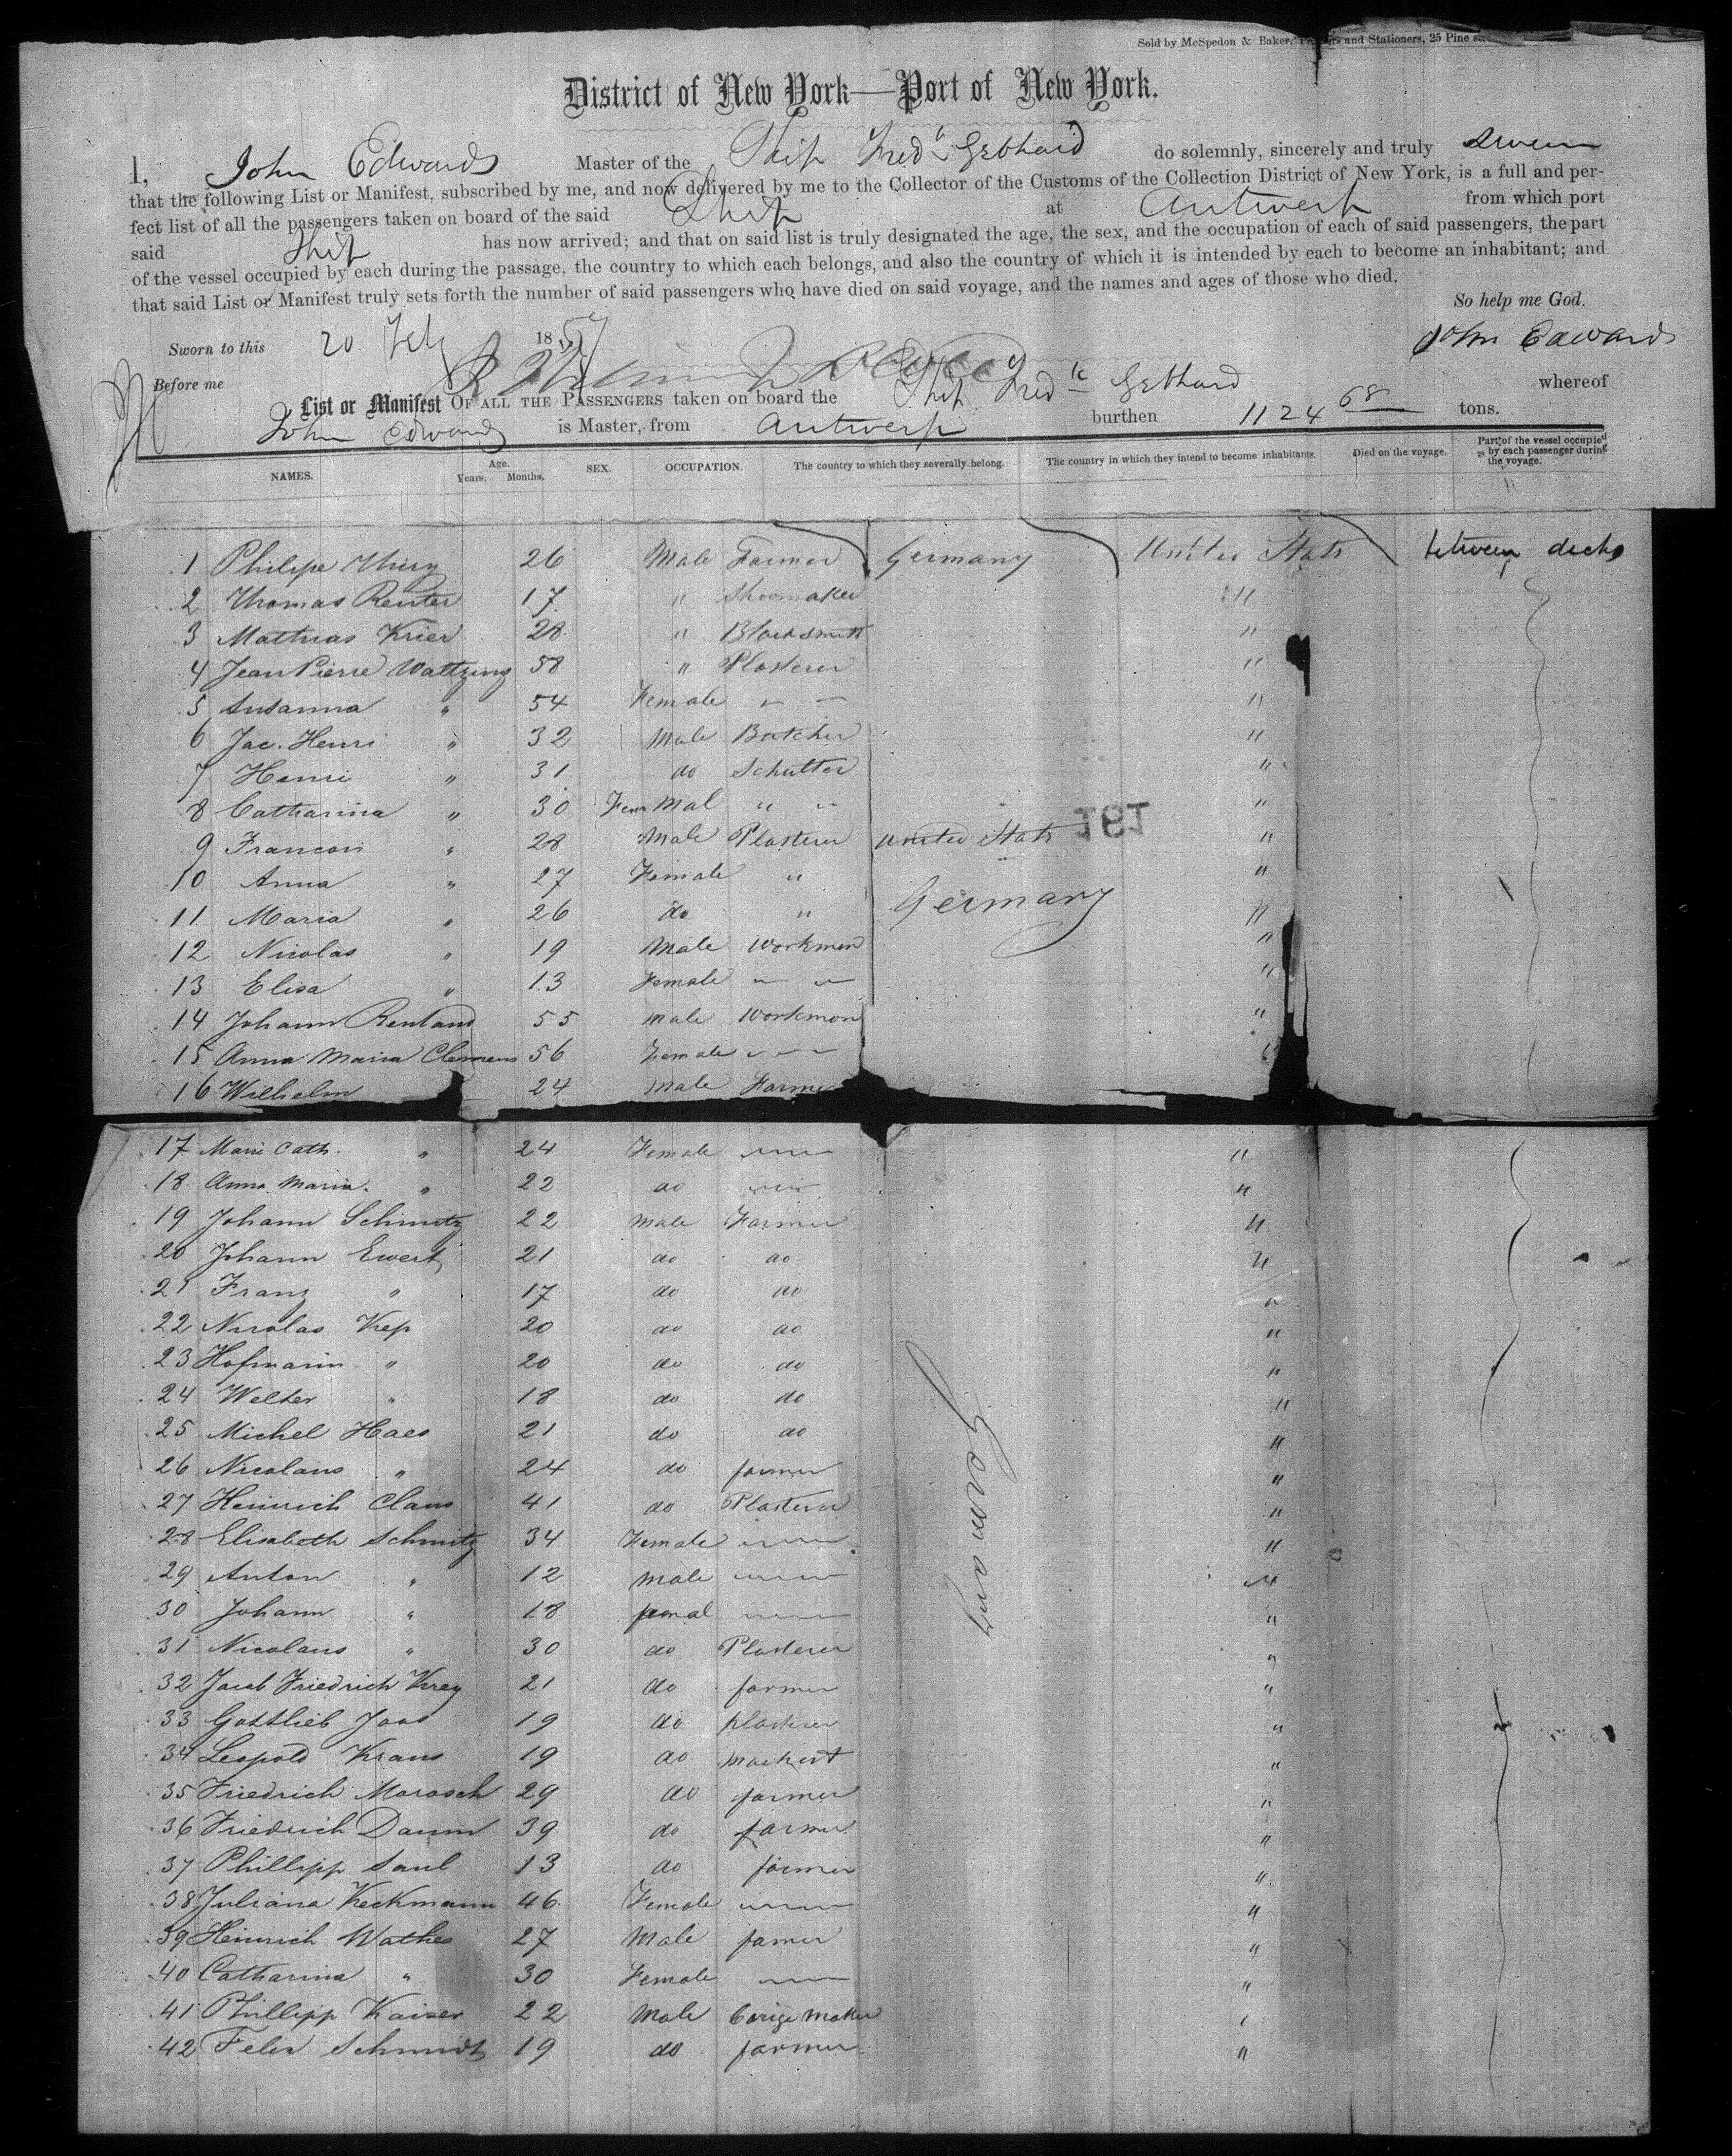 Sold by McSpedon & Baker, and Stationers, 25 Pine
District of New York—Port of New York.
I, John Edwards Master of the Ship Fred k Gebhard do solemnly, sincerely and truly swear
that the following List or Manifest, subscribed by me, and now delivered by me to the Collector of the Customs of the Collection District of New York, is a full and per-
fect list of all the passengers taken on board of the said Ship at Antwerp from which port
said Ship has now arrived; and that on said list is truly designated the age, the sex, and the occupation of each of said passengers, the part
of the vessel occupied by each during the passage, the country to which each belongs, and also the country of which it is intended by each to become an inhabitant; and
that said List or Manifest truly sets forth the number of said passengers who have died on said voyage, and the names and ages of those who died.
So help me God.
Sworn to this 20 Feb 1857 John Edwards
Before me
List or Manifest OF ALL THE PASSENGERS taken on board the Ship Fred k Gebhard whereof
John Edwards is Master, from Antwerp burthen 1124 68 tons.
NAMES. Age. Years. Months. SEX. OCCUPATION. The country to which they severally belong. The country in which they intend to become inhabitants. Died on the voyage. Part of the vessel occupied by each passenger during the voyage.
1 Philipe Thiry 26 Male Farmer Germany United Stats between decks
2 Thomas Renter 17 " Shoomaker "
3 Mathias Krier 28 " Blacksmith "
4 Jean Pierre Waltzing 58 " Plasterer "
5 Susanna " 54 Female "
6 Jac. Henri " 32 Male Butcher "
7 Henri " 31 do Schutter "
8 Catharina " 30 Fem Mal " " "
9 Francois " 28 Male Plasterer United Stats "
181
10 Anna " 27 Female " "
11 Maria " 26 do " Germany "
12 Nicolas " 19 Male Workman "
13 Elisa " 13 Female "
14 Johann 55 Male Workman "
15 Anna Maria Clemens 56 Female "
16 Wilhelm 24 Male Farmer
17 Marie Cath. " 24 Female "
18 Anna Maria. " 22 do "
19 Johann Schmitz 22 Male Farmer "
20 Johann Ewert 21 do do "
21 Franz " 17 do do "
22 Nicolas Kep 20 do do "
23 Hofmann " 20 do do "
24 Welter " 18 do do "
25 Michel Haes 21 do do "
26 Nicolaus " 24 do farmer "
27 Heinrich Claus 41 do Plasterer "
28 Elisabeth Schmitz 34 Female "
29 Anton " 12 Male "
30 Johann " 18 femal "
Germany
31 Nicolaus " 30 do Plasterer "
32 Jacob Friedrich Krey 21 do farmer "
33 Gottlieb Joos 19 do plasterer "
34 Leopold Kraus 19 do "
35 Friedrich Morasch 29 do farmer "
36 Friedrich Daum 39 do farmer "
37 Phillipp Saul 13 do farmer "
38 Juliana Keckmann 46 Female "
39 Heinrich Wathes 27 Male farmer "
40 Catharina " 30 Female "
41 Phillipp Kaiser 22 Male maker
42 Felix Schmidt 19 do farmer "